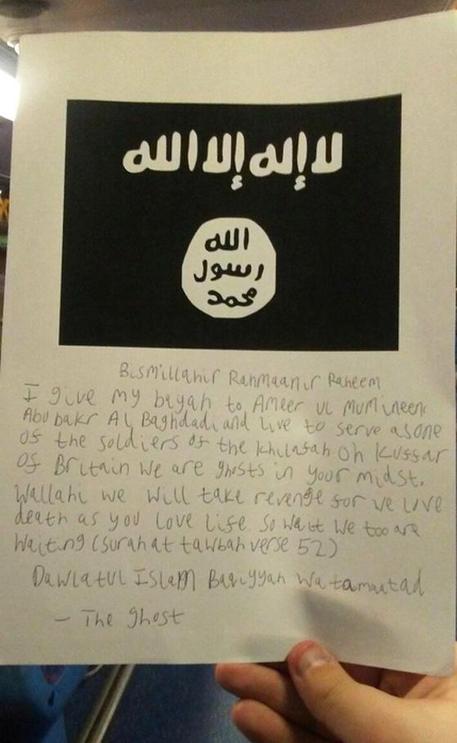 لا إله إلا الله
الله
رسول
محمد
Bismillahir Rahmaanir Raheem
I give my bayah to Ameer ul mumineen
Abu bakr Al Baghdadi and live to serve as one
of the soldiers of the khilafah oh kuffar
of Britain we are ghosts in your midst.
Wallahi we will take revenge for we love
death as you love life so wait we too are
waiting (surah at tawbah verse 52)
Dawlatul Islam Baqiyyah wa tamaatad
- The ghost